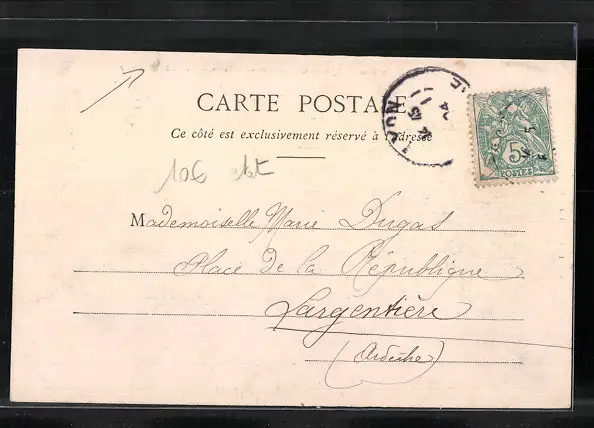 CARTE POSTALE
Ce côté est exclusivement réservé à l'adresse
106
Mademoiselle Marie Dugas
Place de la République
Largentière
(Ardèche)
5
POSTES